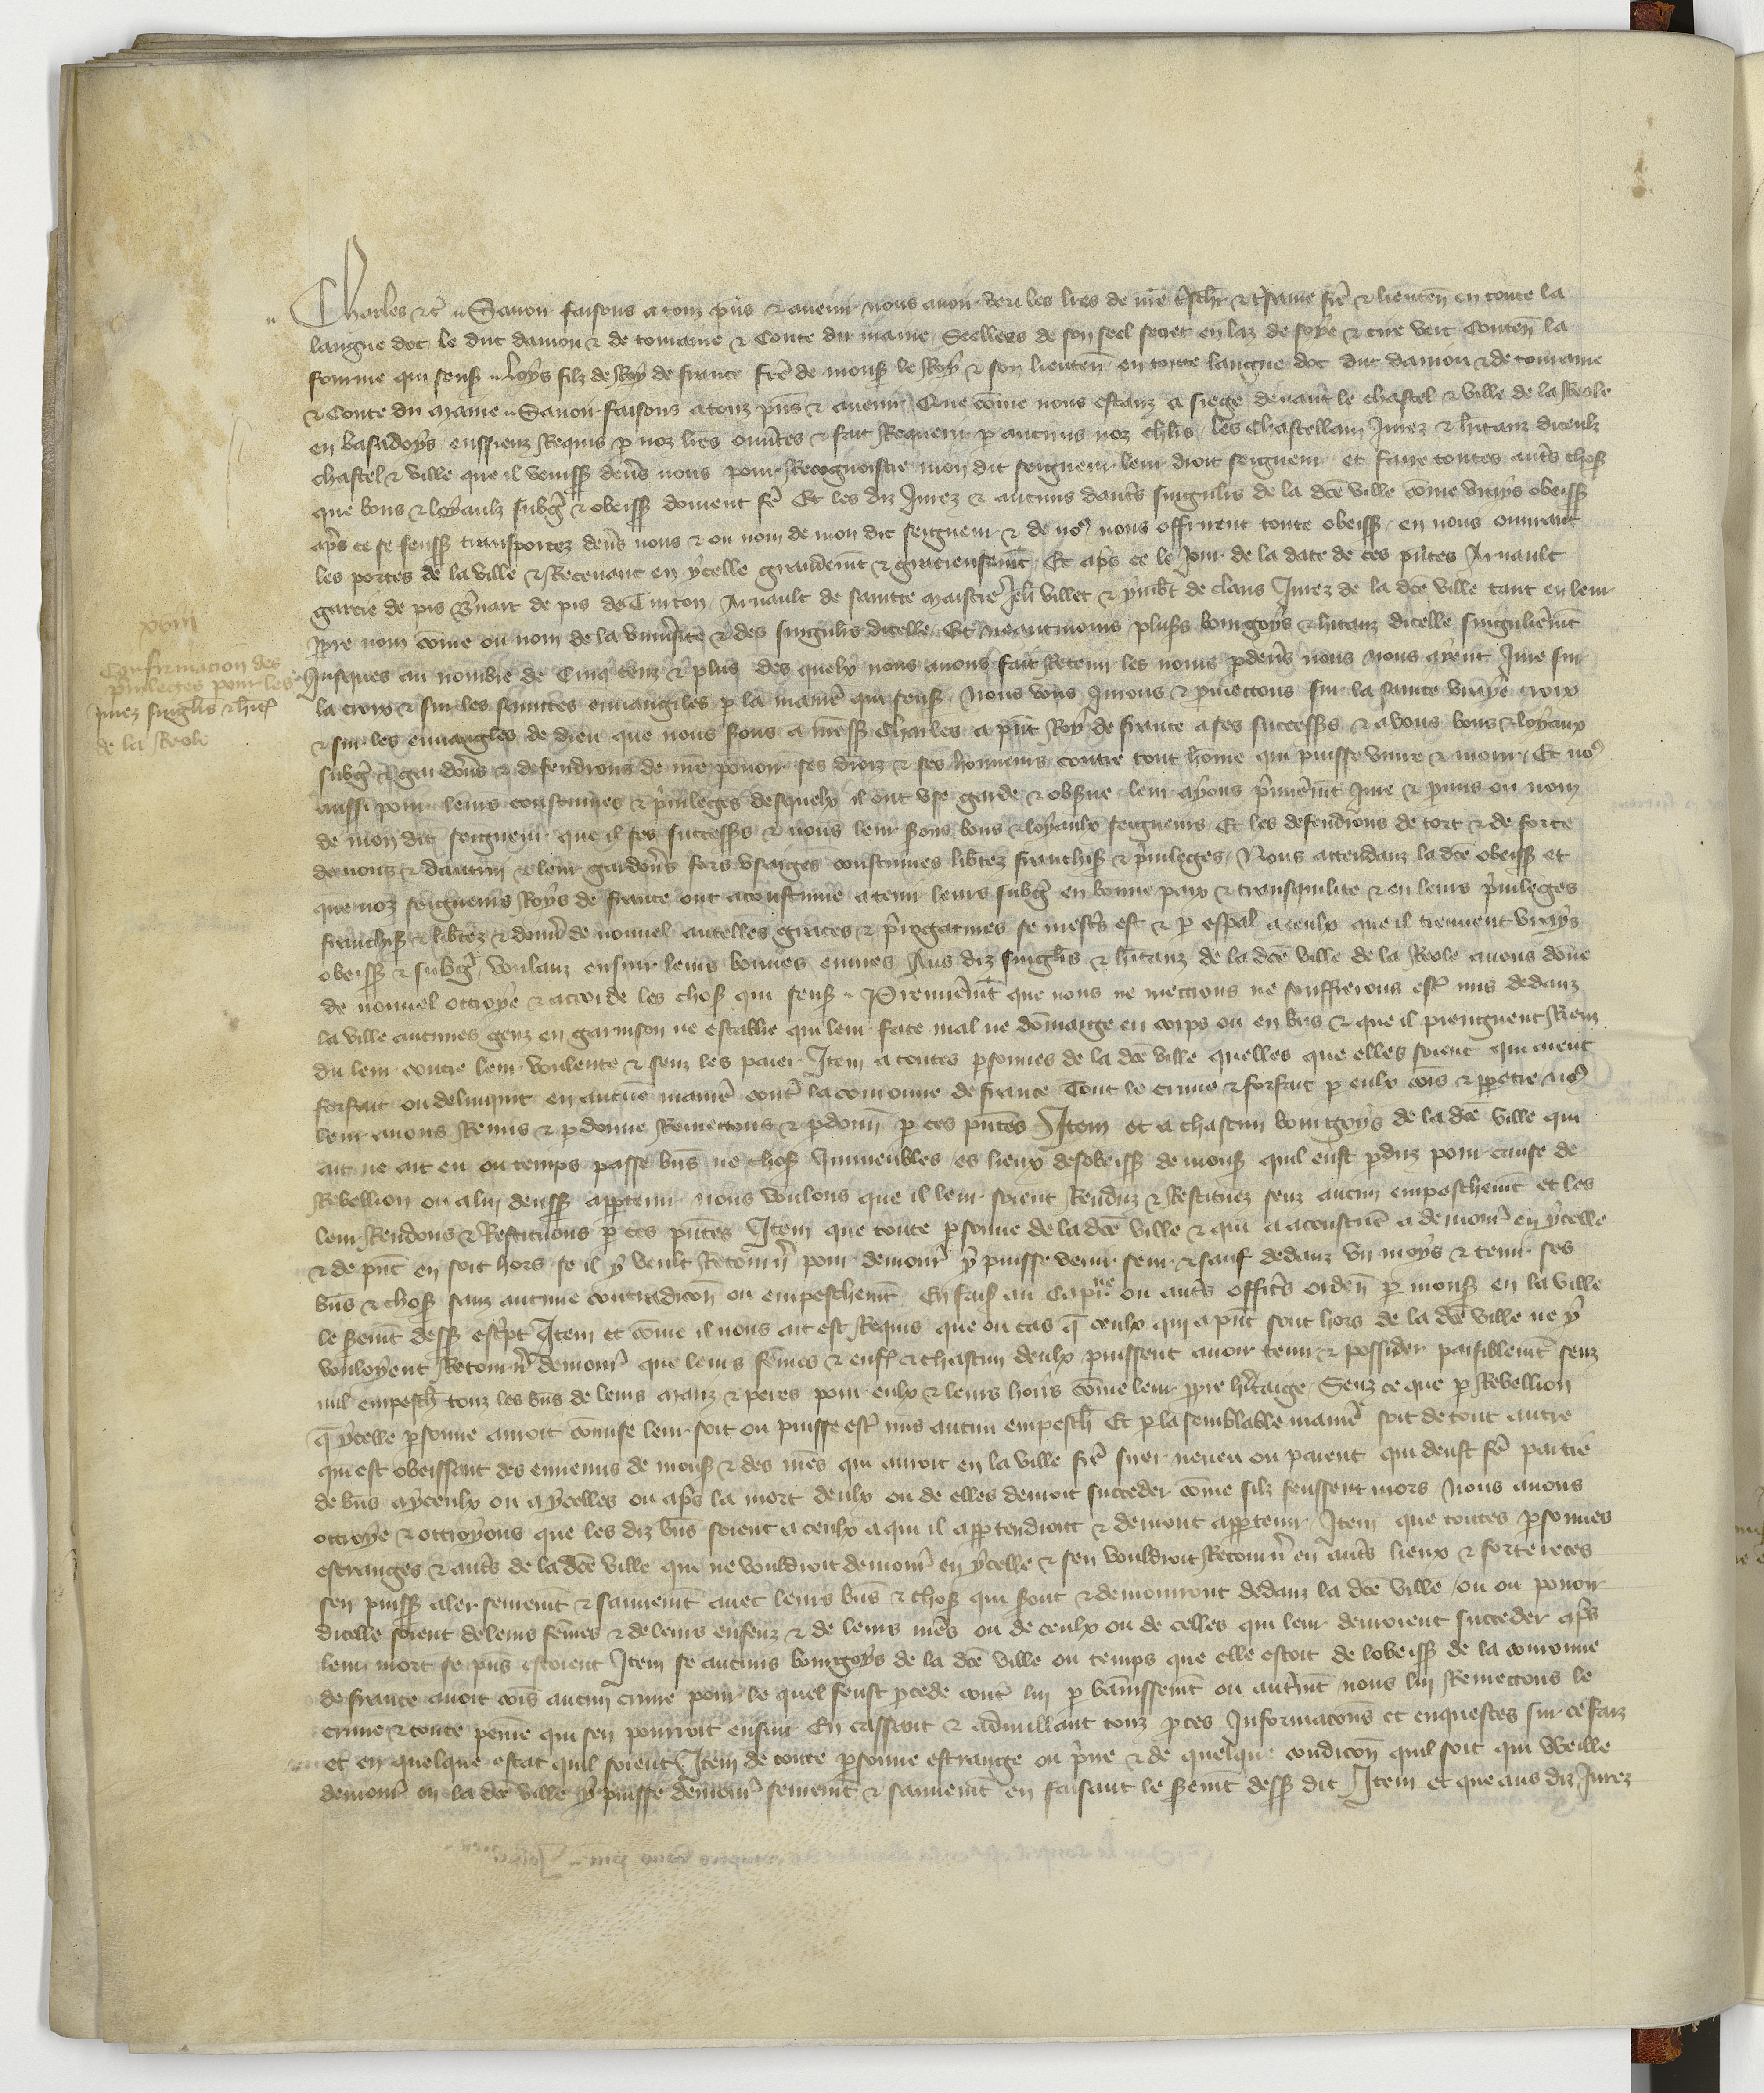 Charles etc. Savoir faisons a touz p̃ns & avenir nous avoir veu les l̃res de nr̃e tresch̃r & tresame fr̃e & lieuten̄ en toute la
langue doc le duc danjou & de touraine & Conte du maine Seellees de son seel secret en laz de soye & cire vert Conten̄ la
fourme qui sensß Loys filz de Roy de france fr̃e de monsß le Roy & son lieuten̄ en toute langue doc duc danjou & de touraine
& Conte du maine Savoir faisons a touz p̃ns & avenir Que cõme nous estanz a siege devant le chastel & ville de la Reole
en basadoys eussienz Requis p noz l̃res ouv̾tes & fait Requerir p aucuns noz ch̃lrs les Chastellain Jurez & h̃itanz diceulx
chastel & ville que il venissß dev̾s nous pour Recognoistre mon dit seigneur leur droit seigneur et faire toutes autr̃s chosß
que bons & loyaulx subgẽ & obeissß doivent fẽ Et les diz Jurez & aucuns dautr̃s singulis de la dc̃e ville cõme vrays obeissß
ap̃s ce se feussß transportez dev̾s nous & ou nom de mon dit seigneur & de no9 nous offrirent toute obeissß en nous ouvrant
les portes de la ville & Recevant en ycelle grandem̃t & gracieusem̃t Et ap̃s ce le Jour de la date de ces p̃ntes Arnault
garcie de pis B̃nart de pis de Tinton Arnault de sainte maistre Jeh̃ villet & ymb̃t de claus Jurez de la dc̃e ville tant en leur
ppre nom cõme ou nom de la univ̾site & des singulis dicelle Et neantmoins plusß bourgoys & h̃itanz dicelle singulierem̃t
Jusques au nombre de Cinq cenz & plus des quelx nous avons fait Retenir les noms p dev̾s nous nous ayent Jure sur
la croix & sur les saintes euvangiles p la manie͛ qui sensß Nous vous Jurons & p̃mectons sur la sainte vraye croix
& sur les euvangiles de dieu que nous ßons a messß Charles a p̃nt Roy de france a ses successß & a vous bons & loyaux
subgẽ & gardons & defendrons de nr̃e povoir ses droiz & ses honneurs contre tout hõme qui puisse vivre & morir Et no9
aussi pour leurs coustumes & privileges desquelx il ont use garde & observe leur ayons p̃mierem̃t Jure & p̃mis ou nom
de mon dit seigneur que il ses successß & nous leur ßons bons & loyaulx seigneurs Et les defendrons de tort & de force
de nous & dautrui & leur gardons fors usaiges coustumes lib̃tez franchisß & privileges Nous attendanz la dc̃e obeissß et
que noz seigneurs Roys de france ont acoustume a tenir leurs subgẽ en bonne paix & transquilite & en leurs privileges
franchisß & lib̃tez & donn̄ de nouvel autelles graces & p̃rogatives se mest̃s est & p esp̃al a ceulx que il treuvent vrays
obeissß & subgẽ voulanz ensuir leurs bonnes euvres Aus diz singlis & h̃itanz de la dc̃e ville de la Reole avons dõne
de nouvel ottroye & accorde les chosß qui sensß Premierem̃t que nous ne mectrons ne souffrerons estr̃ mis dedanz
la ville aucunes genz en garnison ne establie qui leur face mal ne dõmaige en corps ou en b̃ns & que il preignent Riens
du leur contre leur voulente & senz les paier Item a toutes psonnes de la dc̃e ville quelles que elles soient qui aient
forfait ou delinquit en aucune manie͛ cont̃ la couronne de france Tout le crime & forfait p eulx cõis & ppetre no9
leur avons Remis & pdonne Remectons & pdonn̄ p ces p̃ntes Item et a chascun bourgoys de la dc̃e ville qui
ait ne ait eu ou temps passe b̃ns ne chosß Immeubles es lieux desobeissß de monsß quil eust pduz pour cause de
Rebellion ou a lui deussß apptenir nous voulons que il leur soient Renduz & Restituez senz aucun empeschem̃t et les
leur Rendons & Restituons p ces p̃ntes Item que toute psonne de la dc̃e ville & qui a acoustume a demour̃ en ycelle
& de p̃nt en soit hors se il y veult Retourn̄ pour demour̃ y puisse venir seur & sauf dedanz un moys & tenir ses
b̃ns & chosß sanz aucune contradicõn ou empeschem̃t En faisß au Cap̃ne ou autr̃s offic̃s orden̄ p monsß en la ville
le ßem̃t dessß escrpt Item et cõme il nous ait est Requis que ou cas q̃ ceulx qui a p̃nt sont hors de la dc̃e ville ne y
vouloyent Retourn̄ demour̃ que leurs fẽmes & enfß & chascun deulx puissent avoir tenir & possider paisiblem̃t senz
nul empesch̃ touz les b̃ns de leurs mariz & peres pour eulx & leurs hoirs cõme leur ppre h̃itaige Senz ce que p Rebellion
q̃ ycelle psonne auroit cõmise leur soit ou puisse estr̃ mis aucun empesch̃ Et p la semblable manie͛ soit de tout autre
qui est obeissant des ennemis de monsß & des mẽs qui auroit en la ville fr̃e suer neveu ou parent qui deust fẽ partie
de b̃ns a yceulx ou a ycelles ou ap̃s la mort deulx ou de elles devroit succeder cõme silz feussent mors Nous avons
ottroye & ottroyons que les diz b̃ns soient a ceulx a qui il apptendront & devront apptenir Item que toutes psonnes
estranges & autr̃s de la dc̃e ville que ne vouldroit demour̃ en ycelle & sen vouldroit Retourn̄ en autr̃s lieux & fortereces
sen puissß aler seurem̃t & sauvem̃t avec leurs b̃ns & chosß qui sont & demourront dedanz la dc̃e ville ou ou povoir
dicelle soient de leurs fẽmes & de leurs enfenz & de leurs mẽs ou de ceulx ou de celles qui leur devroient succeder ap̃s
leur mort se p̃ns estoient Item se aucuns bourgoys de la dc̃e ville ou temps que elle estoit de lobeissß de la couronne
de france avoit cõis aucun crime pour le quel feust pcede cont̃ lui p bãnissem̃t ou autrem̃t nous lui Remectons le
crime & toute peine qui sen pourroit ensuir En cassant & adnullant touz pces Informacõns et enquestes sur ce faiz
et en quelque estat quil soient Item de toute psonne estrange ou p̃vee & de quelque condicõn quil soit qui Weille
demour̃ en la dc̃e ville y puisse demour̃ seurem̃t & sauvem̃t en faisant le ßem̃t dessß dit Item et que aus diz Jurez
xviij
Confirmacion des
privileges pour les
Jurez singlis & h̃itß
de la Reole